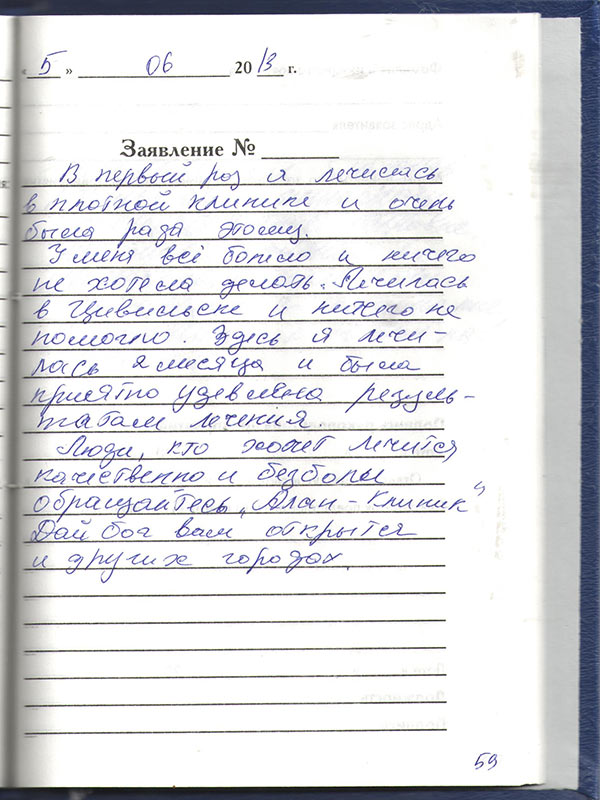 « 5 » 06 2013 г.
Заявление №
В первый роз я лечилась
в плотной клинике и очень
была рада этому.
У меня всё болело и ничего
не хотела делать. Лечилась
в Цивильске и ничего не
помогло. Здесь я лечи-
лась 2 месяца и была
приятно удевлена резуль-
татам лечения.
Люди, кто хочет лечится
качественно и безболи
обращайтесь „Алан-Клиник"
Дай бог вам открытся
и других городах.
59